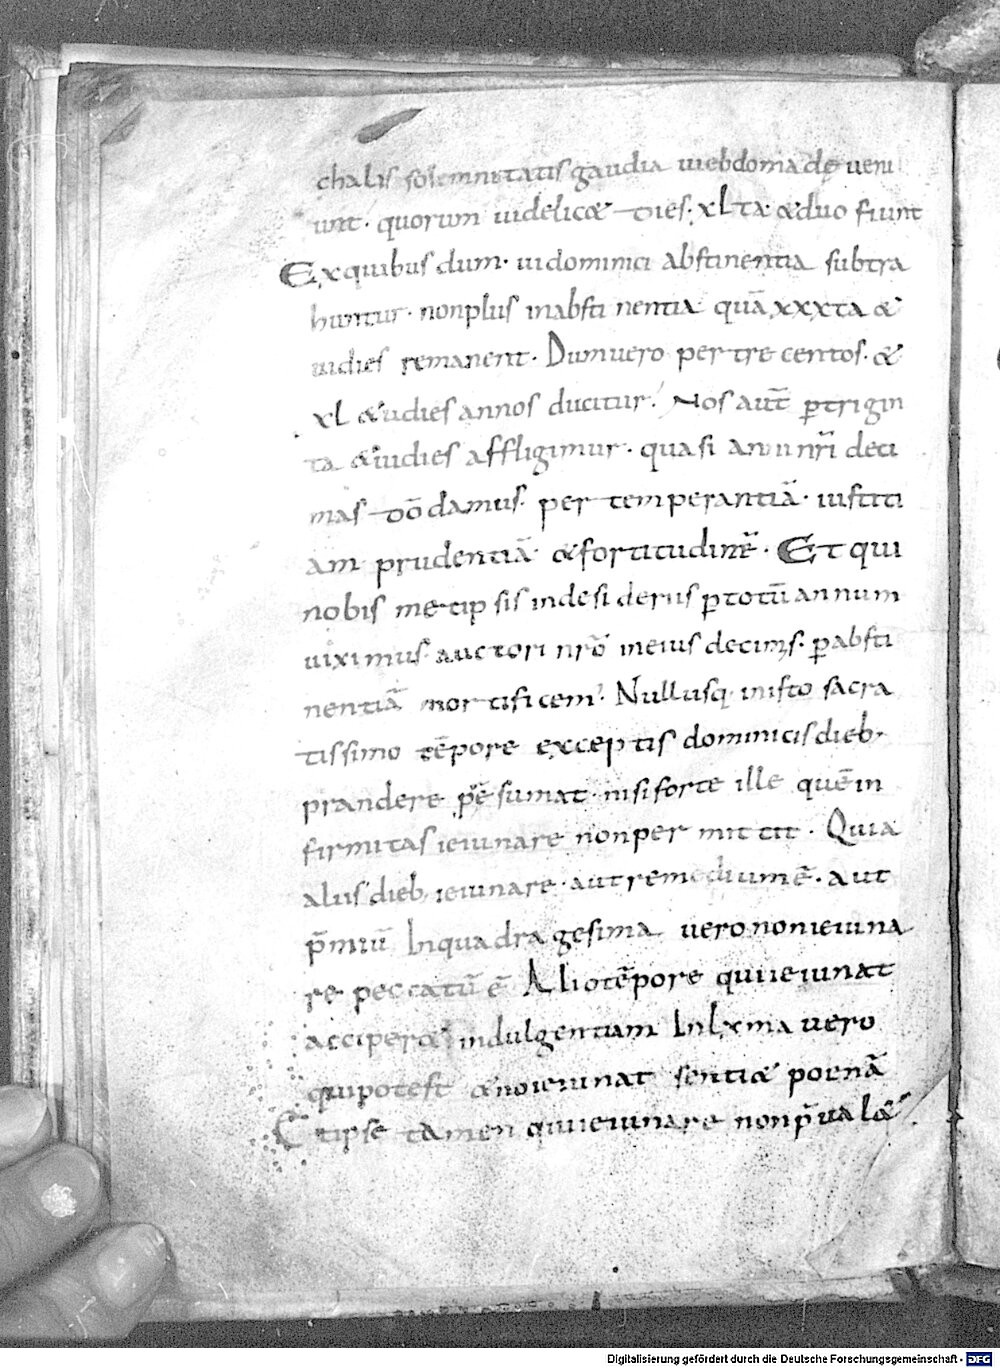 chalis solemnitatis gaudia uiebdomade ueni
unt · quorum uidelic& dies · xLta &duo fiunt
Exquibus dum · uidominici abstinentia subtra
huntur · nonplus inabsti nentia quā xxxta &
uidies remanent · Dumuero per tre centos · &
xL &udies annos ducitur · Nos aut̄ p̱trigin
ta &uidies affligimur · quasi anni nr̄i deci
mas dōdamus · per temperantiā · iustiti
am prudentiā · &fortitudinē · Et qui
nobis metip sis indesi deriis p̱totū annum
uiximus auctori nr̄o ineius decimis · p̱absti
nentiā mortificem' · Nullusq· inisto sacra
tissimo tēpore exceptis dominicisdieb·
prandere p̄sumat · nisiforte ille quēin
firmitas ieiunare nonper mittit · Quia
aliis dieb· ieiunare · autremediumē · aut
p̄miū Inquadragesima uero nonieiuna
re peccatū ē Aliotēpore quiieiunat
acciper& indulgentiam InLxma uero
quipotest &nōieiunat senti& poenā
Etipse tamen quiieiunare nonp̄ual&
Digitalisierung gefördert durch die Deutsche Forschungsgemeinschaft - DFG